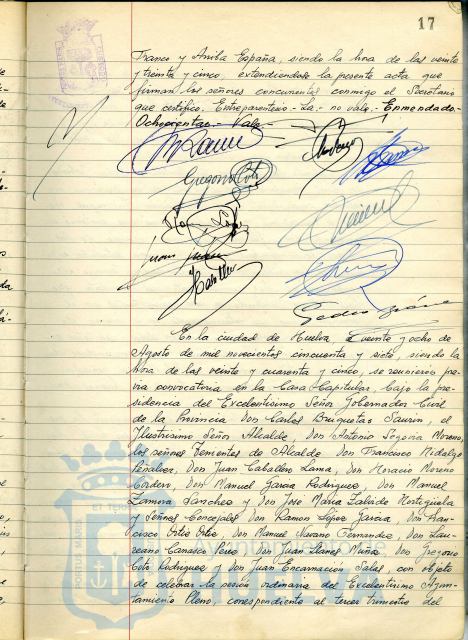 17
Franco y Arriba España, siendo la hora de las veinte
y treinta y cinco, extendiendose la presente acta que
firman los señores concurrentes conmigo el Secretario
que certifico. Entreparentesis.- Le.- no vale.- Enmendado.-
Ochocientas.- Vale.-
Gregorio
Juan
En la ciudad de Huelva a veinte y ocho de
Agosto de mil novecientos cincuenta y siete, siendo la
hora de las veinte y cuarenta y cinco, se reunieron pre-
via convocatoria en la Casa Capitular, bajo la pre-
sidencia del Excelentisimo Señor Gobernador Civil
de la Provincia Don Carlos Bruquetas Saurin, el
Ilustrisimo Señor Alcalde, Don Antonio Segovia Moreno,
los señores Tenientes de Alcalde Don Francisco Hidalgo
Peñalver, Don Juan Caballero Lama, Don Horacio Moreno
Cordero, Don Manuel Garcia Rodriguez, Don Manuel
Zamora Sanchez y Don Jose Maria
y Señores Concejales Don Ramon Lopez Garcia, Don Fran-
cisco Ortiz Ortiz, Don Manuel Navarro Fernandez, Don Lau-
reano Carrasco Don Juan Llanes Don Gregorio
Coto Rodriguez y Don Juan Encarnación Salas, con objeto
de celebrar la sesión ordinaria del Excelentisimo Ayun-
tamiento Pleno, correspondiente al tercer trimestre del